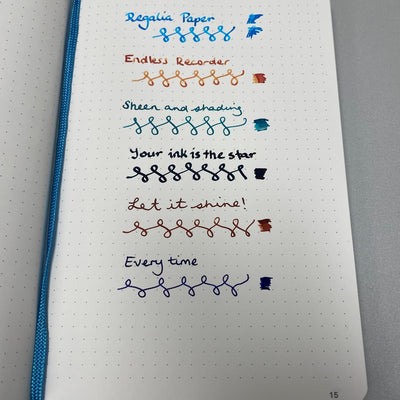 Regalia Paper
Endless Recorder
Sheen and shading
Your ink is the star
Let it shine!
Every time
15